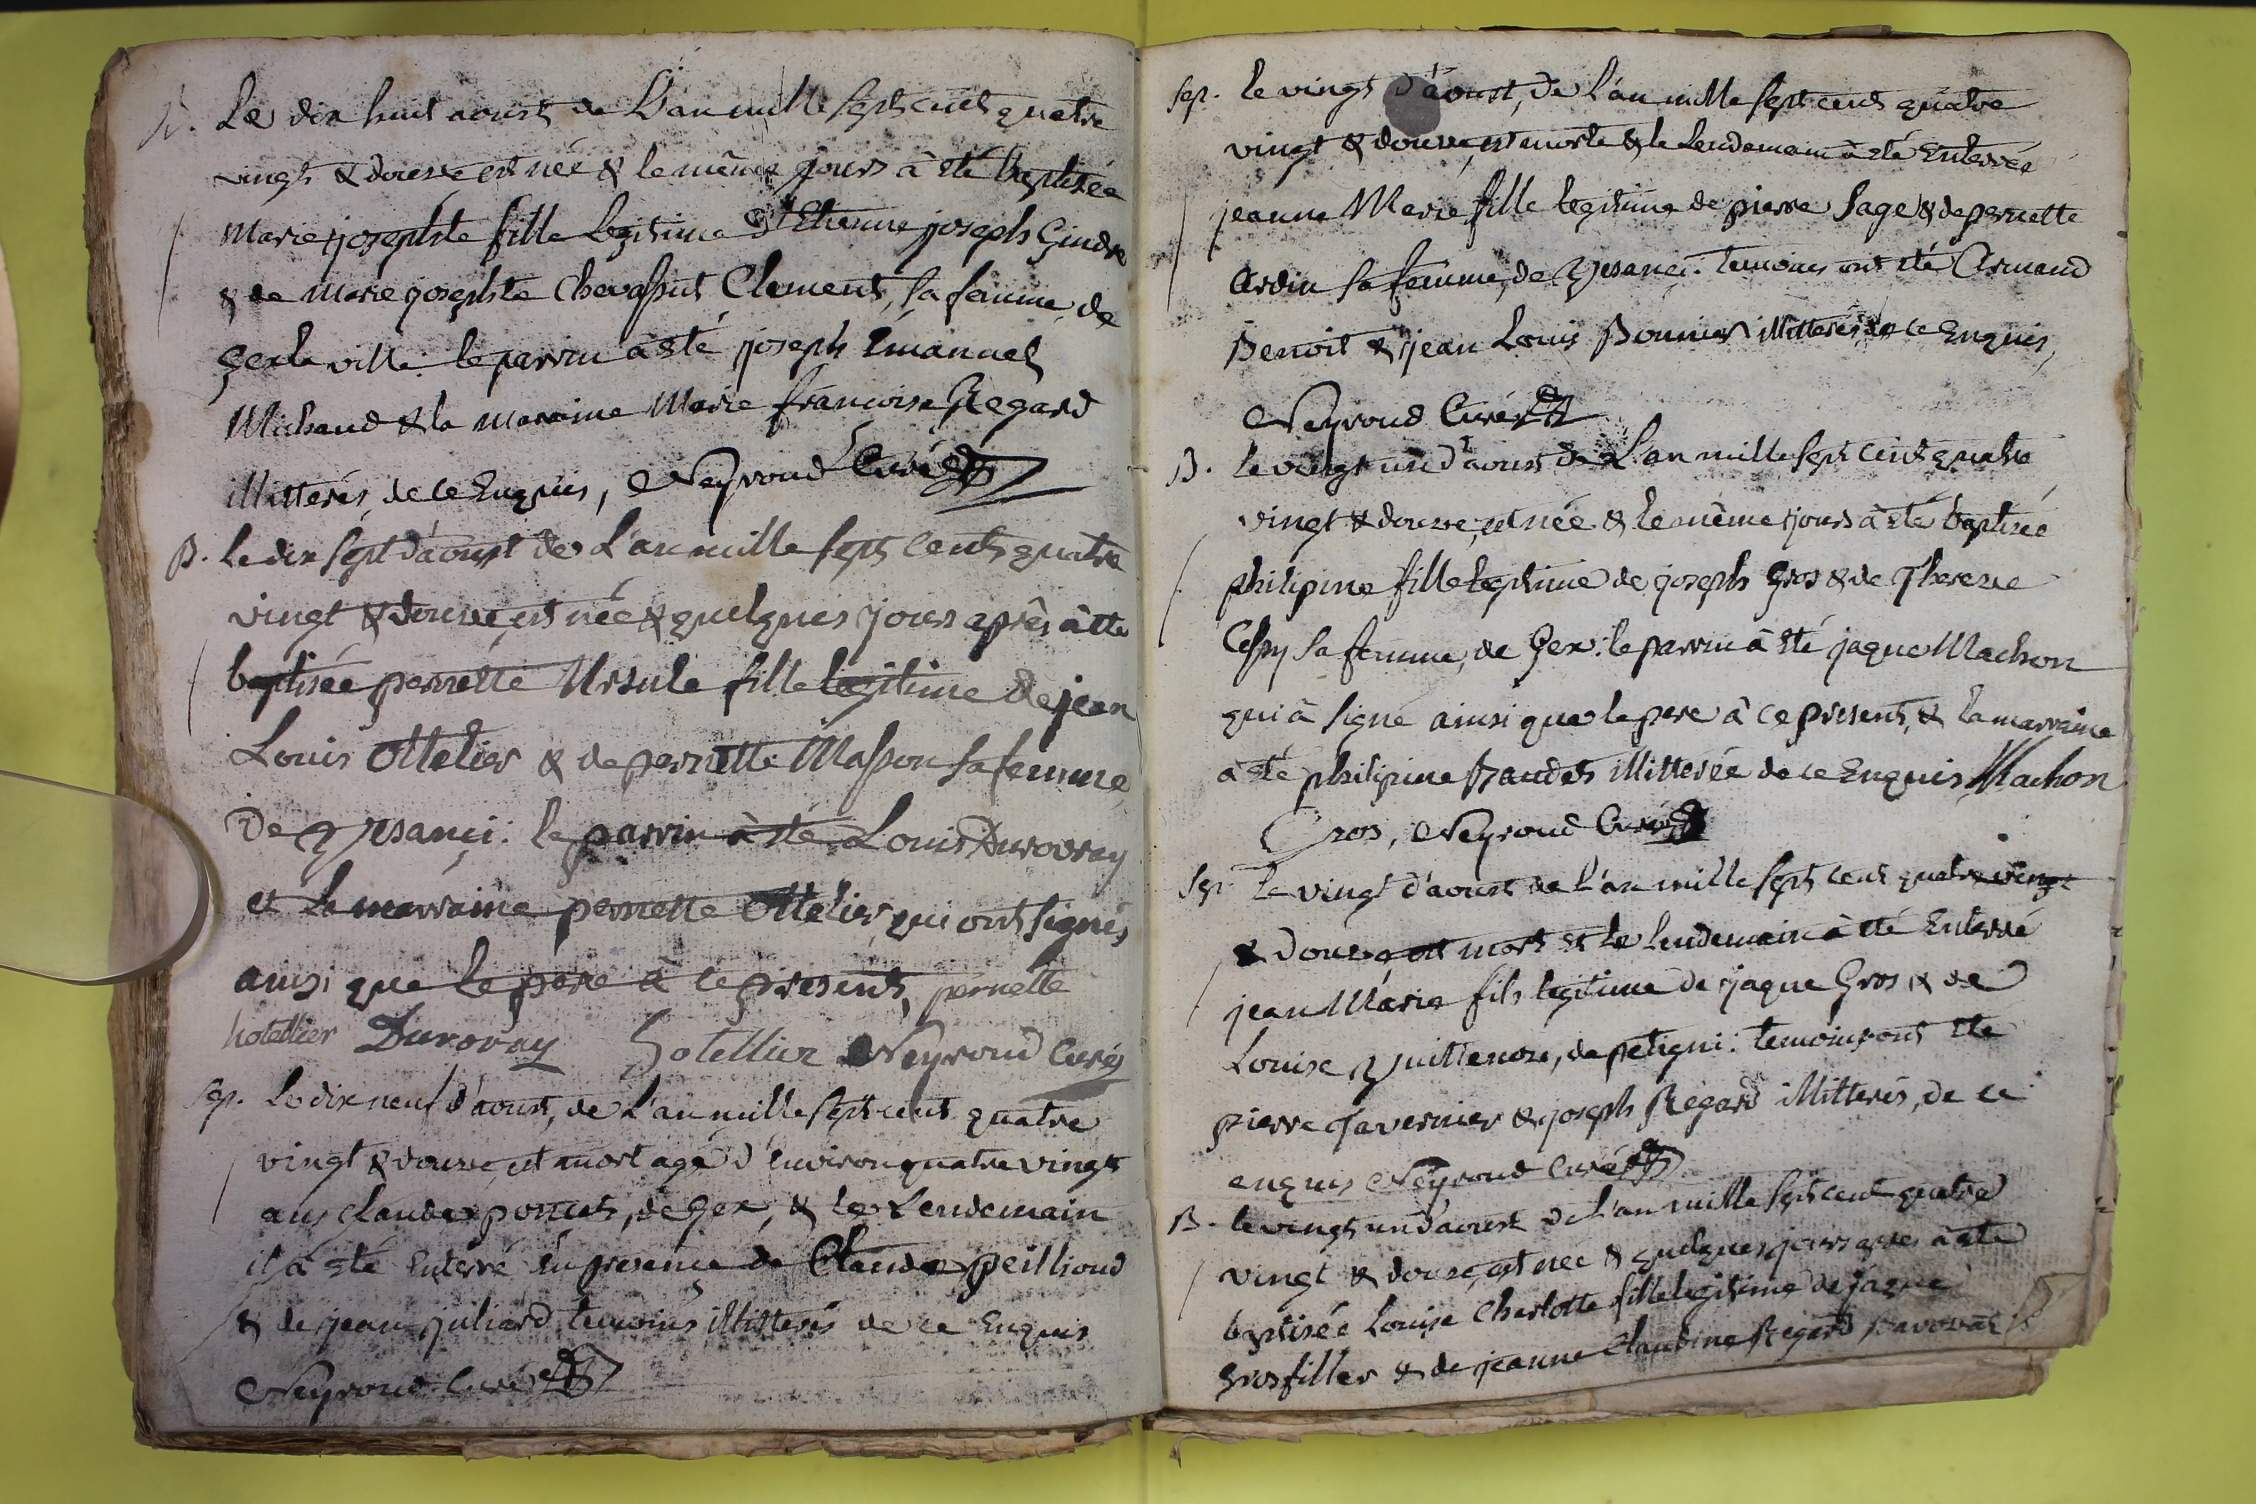 B. Le dix huit aoust de L'an mille sept cent quatre
vingt & douze est née & le même jours à été baptisée
Marie josephte fille legitime d'Etienne joseph Gindre
& de Marie josephte Chevassut Clement, sa femme, de
Gex la ville. le parrin à été joseph Emanuel
Michaud & la maraine Marie françoise Regard
illitterés, de ce Enquis, Neyroud Curé
B. le dix sept d'aoust de L'an mille sept cents quatre
vingt & douze, est née & quelques jours après à été
baptisée pernette Ursule fille legitime de jean
Louis Ottelier & de pernette Masson sa femme,
De Pitegny: le parrin à été Louis Durovray
et La marraine pernette Ottelier, qui ont signés
ainsi que le pere à ce present, pernette
hotellier Durovray hotellier Neyroud Curé
Sep. Le dix neuf d'aoust, de L'an mille sept cent quatre
vingt & douze, est mort agé d'environ quatre vingt
ans Claude poncet, de Gex, & le Lendemain
il à été Enterré En presence de Claude peilliond
& de jean juliard, temoins illitterés de ce Enquis
Neyroud Curé
Sep. le vingt d'aoust, de L'an mille sept cent quatre
vingt & douze, est morte & le Lendemain à été Enterrée
jeanne Marie fille legitime de pierre Sage & de pernette
Ardin sa femme, de: temoins ont été Armand
Benoit & jean Louis Bonnier illitterés, de ce Enquis,
Neyroud Curé
B. le vingt un d'aoust de L'an mille sept cent quatre
vingt & douze, est née & le même jours à été baptisée
philipine fille legitime de joseph Gros & de Therese
Cessy sa femme, de Gex: le parrin à été jaque Machon
qui à signé ainsi que le pere à ce present, & la marraine
à été philipine Baudet illitterée de ce Enquis, Machon
Gros, Neyroud Curé
Sep. Le vingt d'aoust de L'an mille sept cent quatre vingt
& douze, est mort et le lendemain à été Enterré
jean Marie fils legitime de jaque Gros & de
Louise: temoins ont été
pierre Tavernier & joseph Regard illitterés, de ce
enquis Neyroud Curé
B. le vingt un d'aoust de L'an mille sept cent quatre
vingt & douze, est née & quelques jours après à été
baptisée Louise Charlotte fille legitime de jaque
Grosfiller & de jeanne Claudine Regard